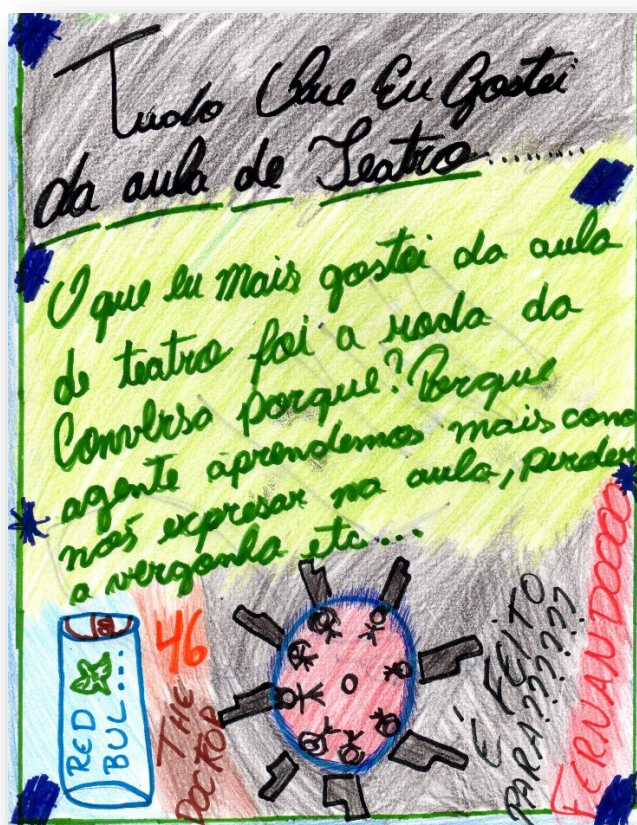 Tudo Que Eu Gostei
da aula de Teatro.........
O que eu mais gostei da aula
de teatro foi a roda da
Conversa porque? Porque
agente aprendemos mais como
nos expresar na aula, perder
a vergonha etc...
RED
BUL...
46
THE
DOCTOR
É FEITO
PARA??????
FERNANDOOOO